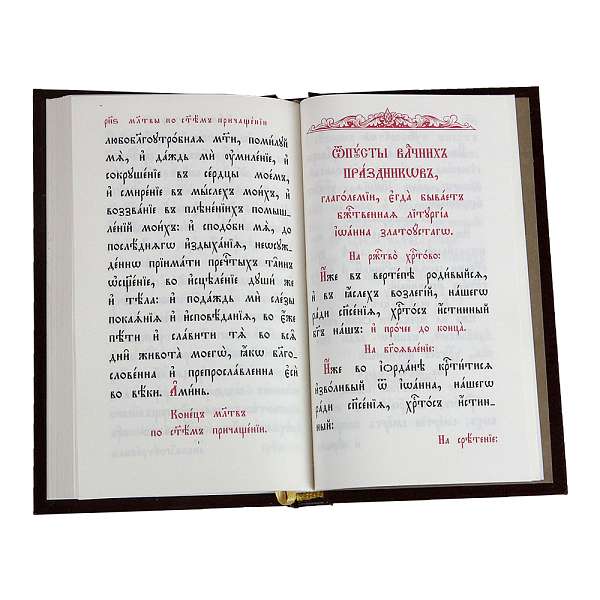 рп҃ѕ мл҃твы по ст҃ѣмъ причаще́нїи
любобл҃гоꙋтро́бнаѧ мт҃и, поми́лꙋй
мѧ̀, и҆ да́ждь мѝ ᲂу҆миле́нїе, и҆
сокрꙋше́нїе въ се́рдцы мое́мъ,
и҆ смире́нїе въ мы́слехъ мои́хъ, и҆
воззва́нїе въ плѣне́нїихъ помышл-
ле́нїй мои́хъ: и҆ сподо́би мѧ̀, до
послѣ́днѧгѡ и҆здыха́нїѧ, неѡсꙋжде́ннѡ
прїима́ти пречⷭ҇тыхъ та̑инъ
ѡ҆сщ҃е́нїе, во и҆сцѣле́нїе дꙋшѝ же
и҆ тѣ́ла: и҆ пода́ждь мѝ сле́зы
покаѧ́нїѧ и҆ и҆сповѣ́данїѧ, во є҆́же
пѣ́ти и҆ сла́вити тѧ̀ во всѧ̑
дни̑ живота̀ моегѡ̀, ꙗ҆́кѡ бл҃гослове́нна
и҆ препросла́вленна є҆сѝ
во вѣ́ки. А҆ми́нь.
Коне́цъ мл҃твъ
по ст҃ѣмъ причаще́нїи.
Ѿпꙋ́сты влⷣчнихъ
пра́здникѡвъ,
глаго́лемїи, є҆гда̀ быва́етъ
бж҃е́ственнаѧ лїтꙋргі́а
і҆ѡа́нна златоꙋ́стагѡ.
На ржⷭ҇тво̀ хрⷭ҇то́во:
И҆́же въ верте́пѣ роди́выйсѧ,
и҆ въ ꙗ҆́слехъ возлегі́й, на́шегѡ
ра́ди сп҃се́нїѧ, хрⷭ҇то́съ и҆́стинный
бг҃ъ на́шъ: и҆ про́чее до конца̀.
На бг҃оѧвле́нїе:
И҆́же во і҆ѻрда́нѣ крⷭ҇ти́тисѧ
и҆зво́ливый ѿ і҆ѡа́нна, на́шегѡ
ра́ди сп҃се́нїѧ, хрⷭ҇то́съ и҆́стинный:
На срѣ́тенїе: